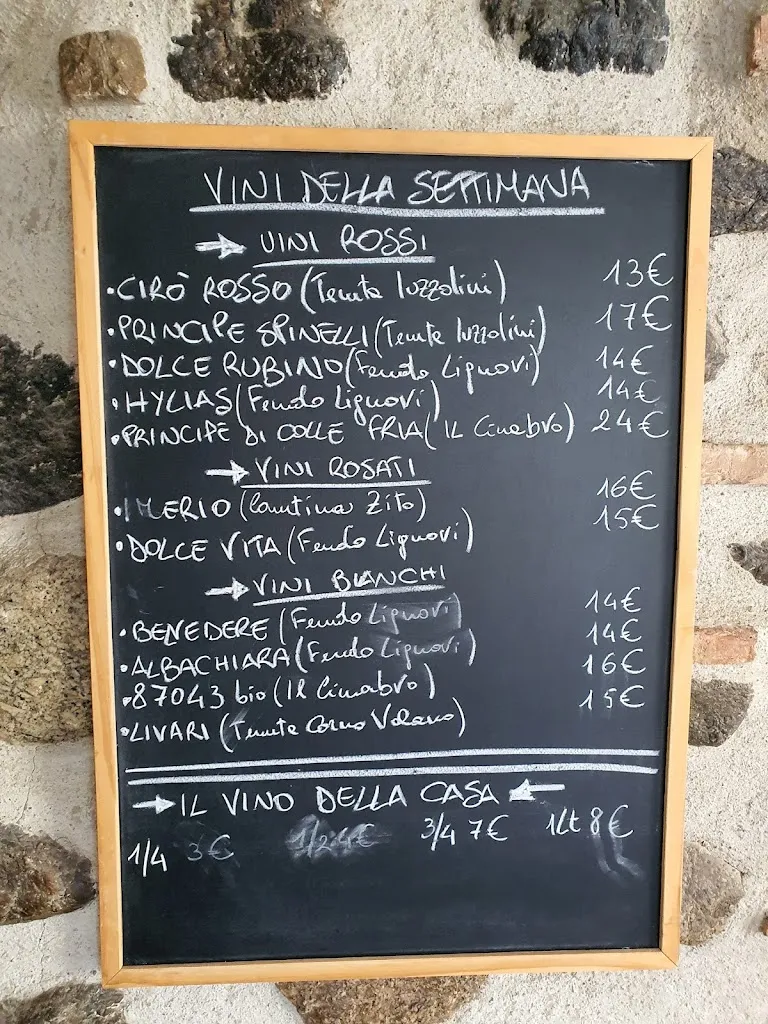 VINI DELLA SETTIMANA
→ VINI ROSSI
• CIRÒ ROSSO (Tenuta Iuzzolini) 13€
• PRINCIPE SPINELLI (Tenuta Iuzzolini) 17€
• DOLCE RUBINO (Feudo Liguori) 14€
• HYLIAS (Feudo Liguori) 14€
• PRINCIPE DI COLLE FRIA (IL Cinabro) 24€
→ VINI ROSATI
• IMERIO (Cantina Zito) 16€
• DOLCE VITA (Feudo Liguori) 15€
→ VINI BIANCHI
• BENEDERE (Feudo Liguori) 14€
• ALBACHIARA (Feudo Liguori) 14€
• 87043 bio (Il Cinabro) 16€
• LIVARI (Tenute Corno Volano) 15€
→ IL VINO DELLA CASA ←
1/4 3€ 1/2 4€ 3/4 7€ 1Lt 8€